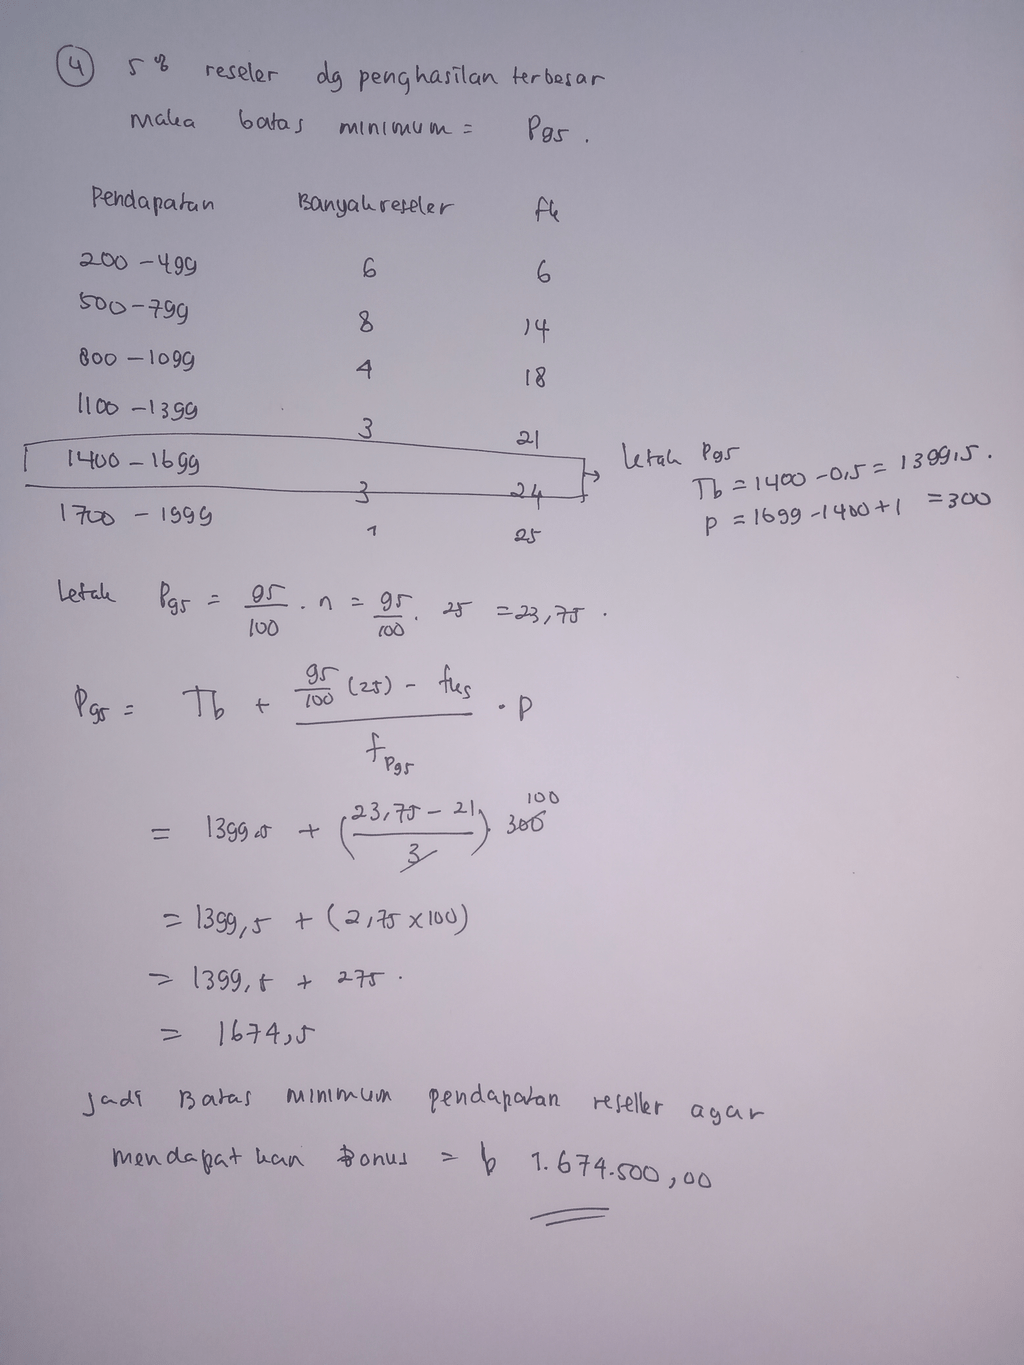 4 5% reseler dg penghasilan terbesar
maka batas minimum = P95.
Pendapatan Banyak reseler fk
200 - 499 6 6
500 - 799 8 14
800 - 1099 4 18
1100 - 1399 3 21
1400 - 1699 3 24 → letak P95
Tb = 1400 - 0,5 = 1399,5.
p = 1699 - 1400 + 1 = 300
1700 - 1999 1 25
Letak P95 = 95/100 . n = 95/100 . 25 = 23,75 .
P95 = Tb + (95/100 (25) - fks)/fP95 . P
= 1399,5 + (23,75 - 21/3) 300 100
= 1399,5 + (2,75 x 100)
= 1399,5 + 275 .
= 1674,5
Jadi Batas minimum pendapatan reseller agar
mendapatkan Bonus = 1.674.500,00